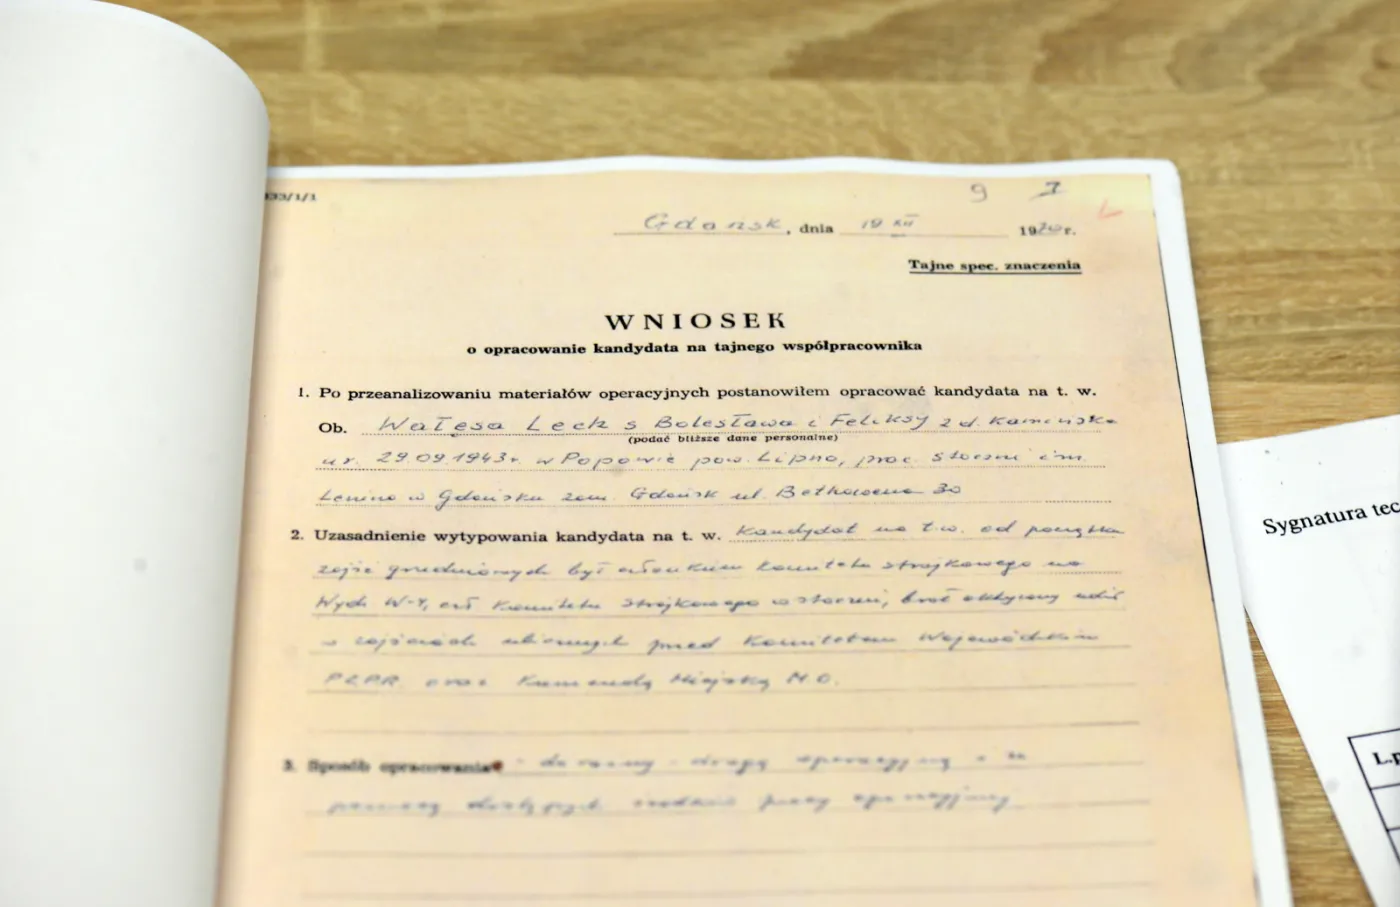 33/1/1
9 7
Gdańsk, dnia 19 XII 1970 r.
Tajne spec. znaczenia
WNIOSEK
o opracowanie kandydata na tajnego współpracownika
1. Po przeanalizowaniu materiałów operacyjnych postanowiłem opracować kandydata na t. w.
Ob. Wałęsa Lech s Bolesława i Feliksy z d. Kamińska
(podać bliższe dane personalne)
ur. 29.09.1943r. w Popowie pow. Lipno, prac. stoczni im.
Lenina w Gdańsku zam. Gdańsk ul. Bethovena 30
2. Uzasadnienie wytypowania kandydata na t. w. Kandydat na t.w. od początku
zajść grudniowych był członkiem Komitetu strajkowego na
Wydz W-4, czł Komitetu Strajkowego w stoczni, brał aktywny udział
w zajściach ulicznych przed Komitetem Wojewódzkim
PZPR oraz Komendą Miejską M.O.
3. Sposób opracowania drogą operacyjną
pomocy pracy operacyjnej
Sygnatura tec
L.p